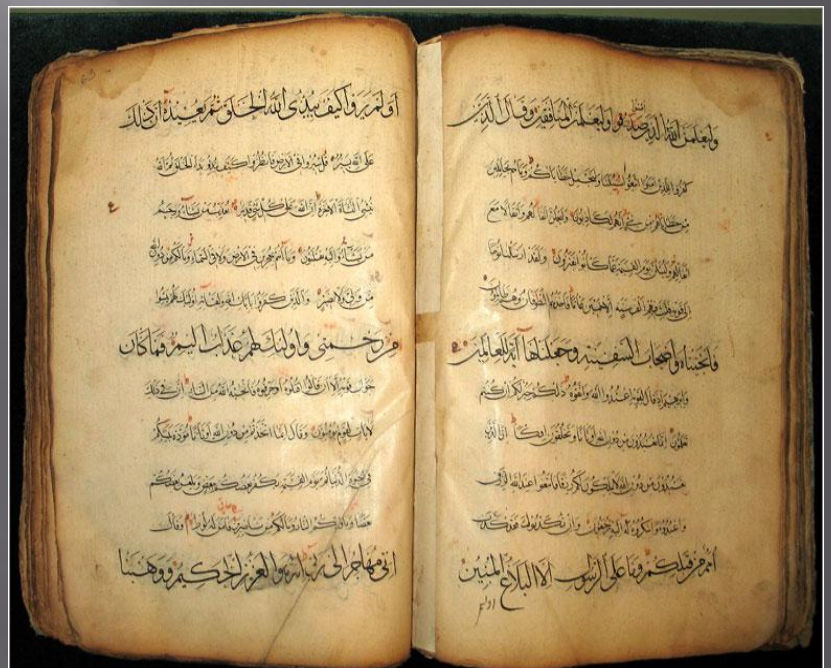 امنوا
وليعلمن الله الذين صدقوا وليعلمن المنافقين وقال الذين
كفروا للذين امنوا اتبعوا سبيلنا ولنحمل خطاياكم وما هم بحاملين
من خطاياهم من شيء انهم لكاذبون وليحملن اثقالهم واثقالا مع
اثقالهم وليسئلن يوم القيمة عما كانوا يفترون ولقد ارسلنا نوحا
الى قومه فلبث فيهم الف سنة الا خمسين عاما فاخذهم الطوفان وهم ظالمون
فانجيناه واصحاب السفينة وجعلناها آية للعالمين
وابرهيم اذ قال لقومه اعبدوا الله واتقوه ذلكم خير لكم ان كنتم
تعلمون انما تعبدون من دون الله اوثانا وتخلقون افكا ان الذين
تعبدون من دون الله لا يملكون لكم رزقا فابتغوا عند الله الرزق
واعبدوه واشكروا له اليه ترجعون وان تكذبوا فقد كذب
امم من قبلكم وما على الرسول الا البلاغ المبين
اولم
اولم يروا كيف يبدئ الله الخلق ثم يعيده ان ذلك
على الله يسير قل سيروا في الارض فانظروا كيف بدأ الخلق ثم الله
ينشئ النشأة الآخرة ان الله على كل شيء قدير يعذب من يشاء ويرحم
من يشاء واليه تقلبون وما انتم بمعجزين في الارض ولا في السماء وما لكم من دون الله
من ولي ولا نصير والذين كفروا بايات الله ولقائه اولئك يئسوا
من رحمتي واولئك لهم عذاب اليم فما كان
جواب قومه الا ان قالوا اقتلوه او حرقوه فانجيه الله من النار ان في ذلك
لايات لقوم يؤمنون وقال انما اتخذتم من دون الله اوثانا مودة بينكم
في الحيوة الدنيا ثم يوم القيمة يكفر بعضكم ببعض ويلعن بعضكم
بعضا ومأويكم النار وما لكم من ناصرين فامن له لوط وقال
اني مهاجر الى ربي انه هو العزيز الحكيم ووهبنا